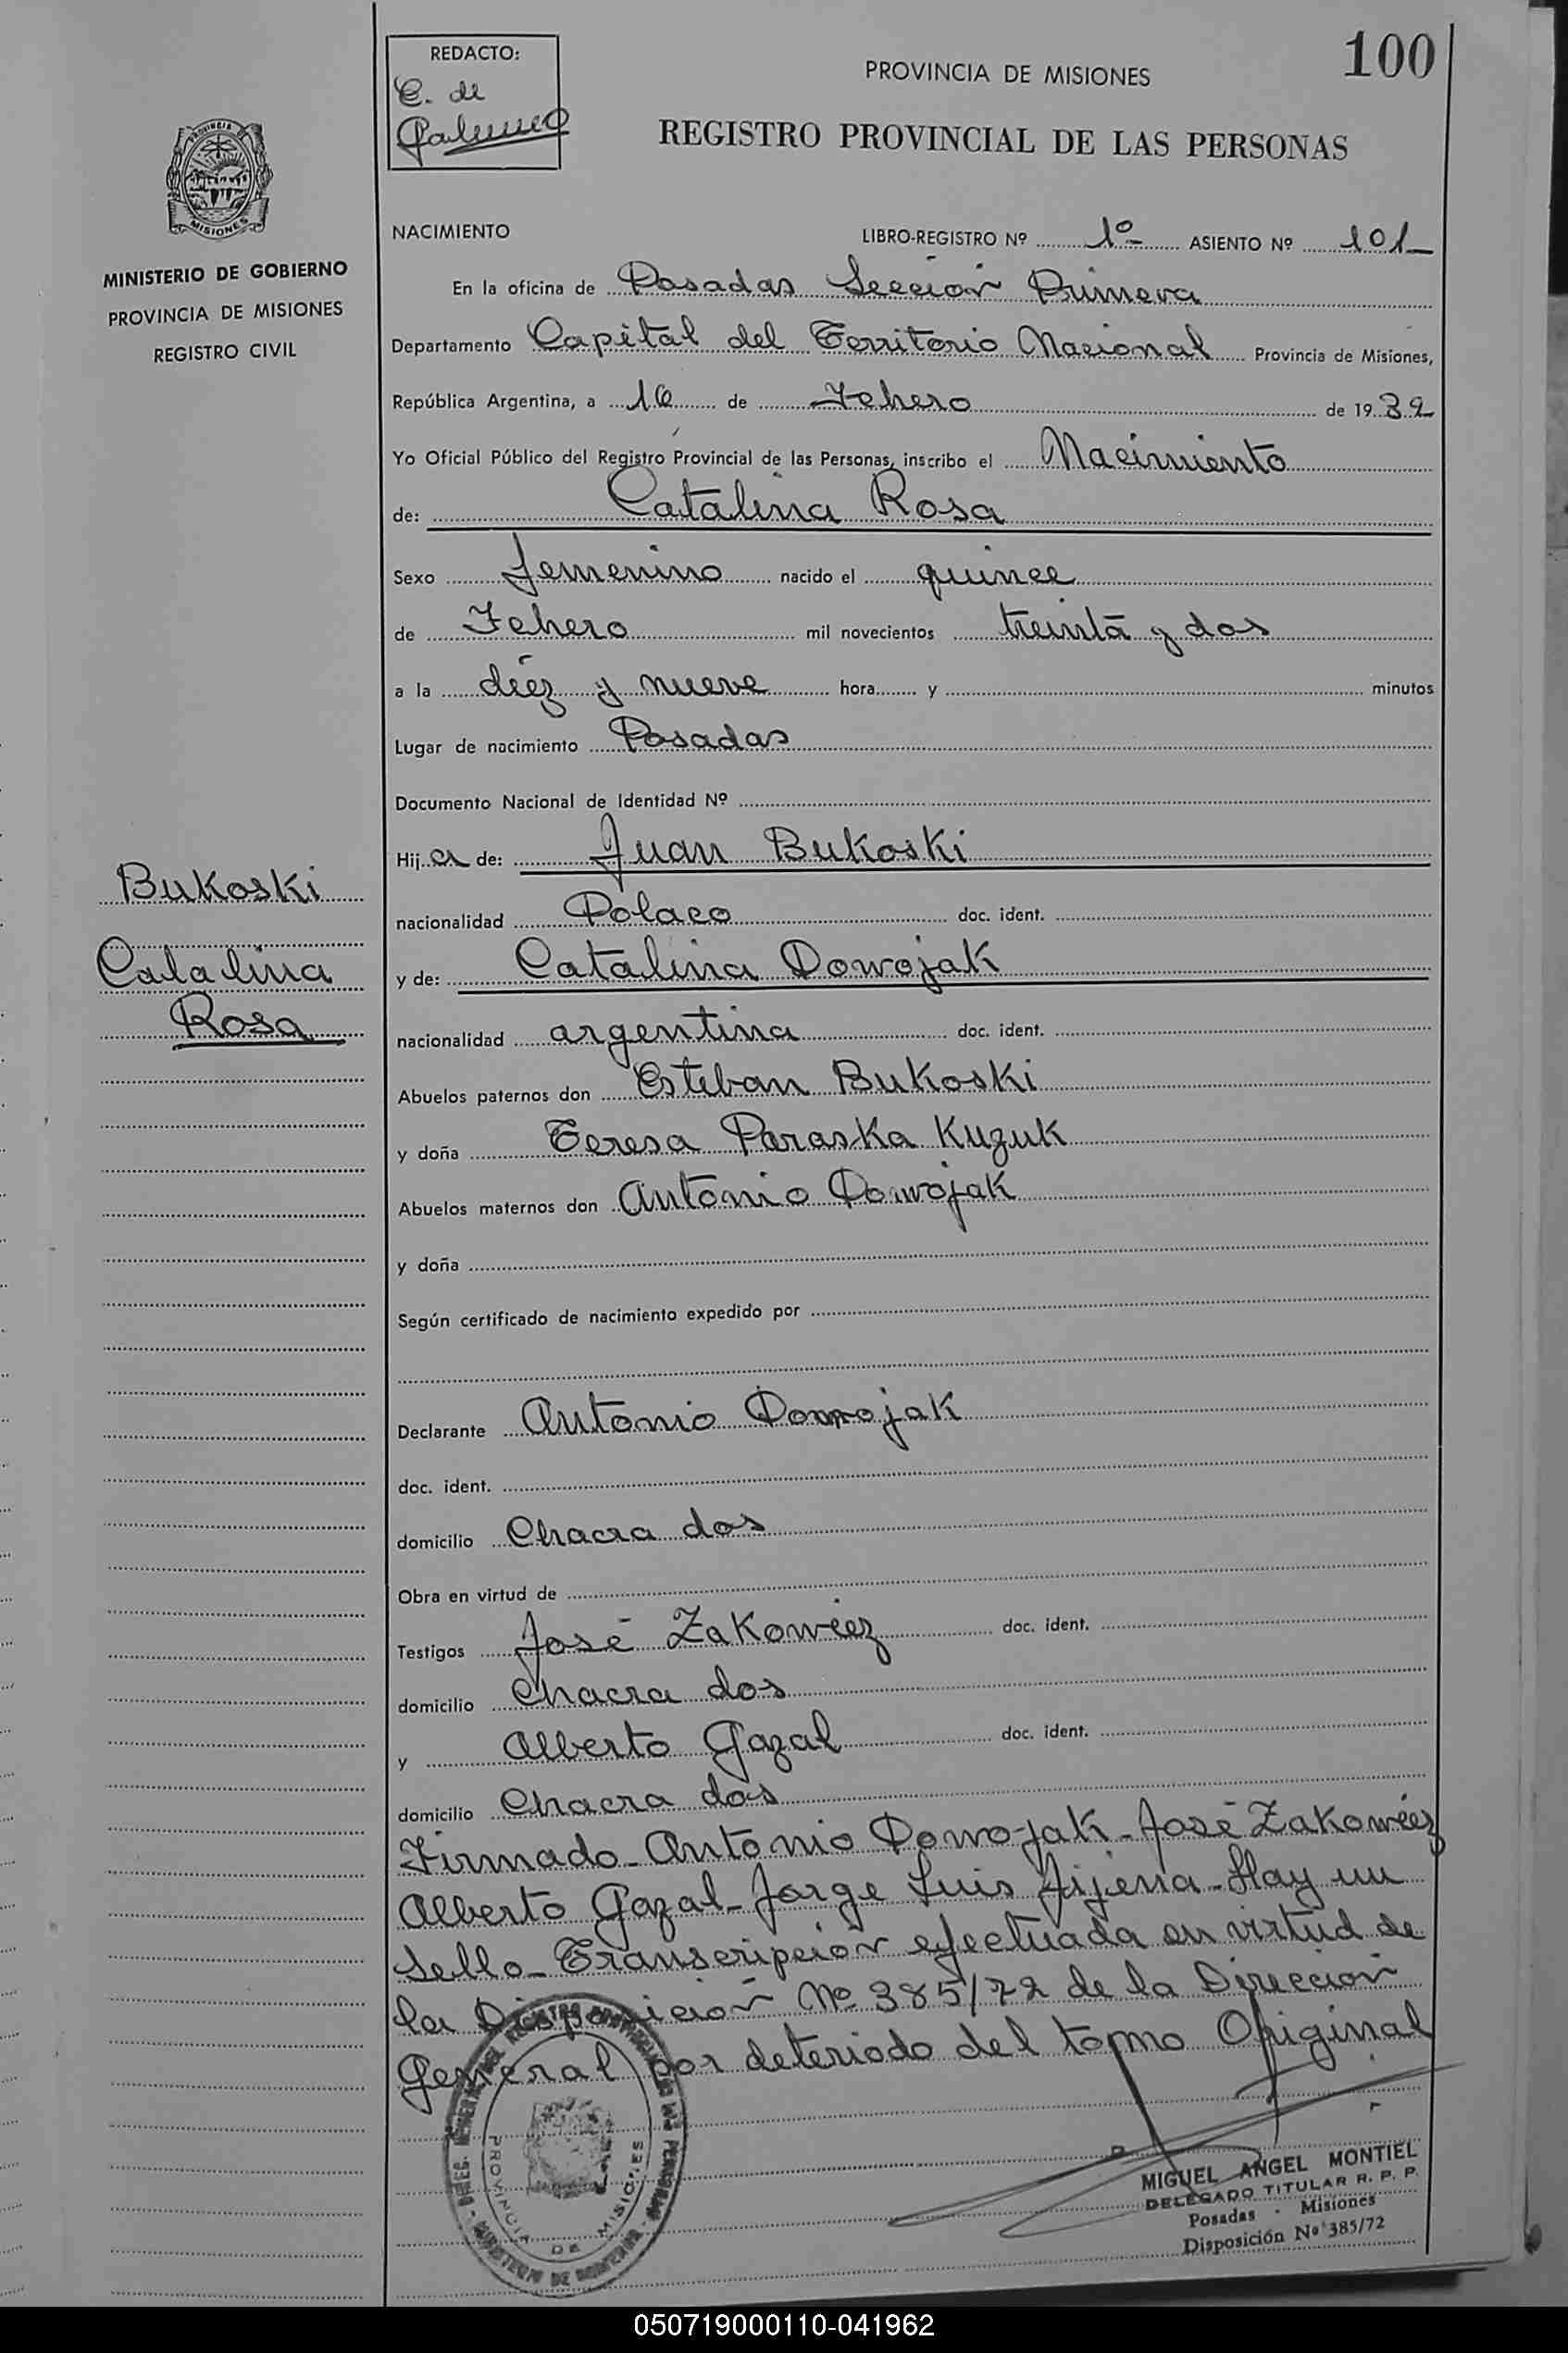 100
REDACTO:
C. de
PROVINCIA DE MISIONES
REGISTRO PROVINCIAL DE LAS PERSONAS
MISIONES
MINISTERIO DE GOBIERNO
PROVINCIA DE MISIONES
REGISTRO CIVIL
NACIMIENTO LIBRO-REGISTRO Nº 1º ASIENTO Nº 101
En la oficina de Posadas Sección Primera
Departamento Capital del Territorio Nacional Provincia de Misiones,
República Argentina, a 16 de Febrero de 1932
Yo Oficial Público del Registro Provincial de las Personas, inscribo el Nacimiento
de: Catalina Rosa
Sexo femenino nacido el quince
de Febrero mil novecientos treinta y dos
a la diéz y nueve hora y minutos
Lugar de nacimiento Posadas
Documento Nacional de Identidad Nº
Hija de: Juan Bukoski
Bukoski
nacionalidad Polaco doc. ident.
Catalina
y de: Catalina Dowojak
Rosa
nacionalidad argentina doc. ident.
Abuelos paternos don Esteban Bukoski
y doña Teresa Paraska Kuzuk
Abuelos maternos don Antonio Dowojak
y doña
Según certificado de nacimiento expedido por
Declarante Antonio Dowojak
doc. ident.
domicilio Chacra dos
Obra en virtud de
Testigos José Zakowiez doc. ident.
domicilio Chacra dos
y Alberto Gazal doc. ident.
domicilio Chacra dos
Firmado - Antonio Dowojak - José Zakowiez
Alberto Gazal - Jorge Luis Aijena - Hay un
Sello - Transcripción efectuada en virtud de
la Disposición Nº 385/72 de la Dirección
General por deteriodo del tomo Original
PROVINCIA DE MISIONES
MIGUEL ANGEL MONTIEL
DELEGADO TITULAR R. P. P.
Posadas - Misiones
Disposición Nº 385/72
050719000110-041962